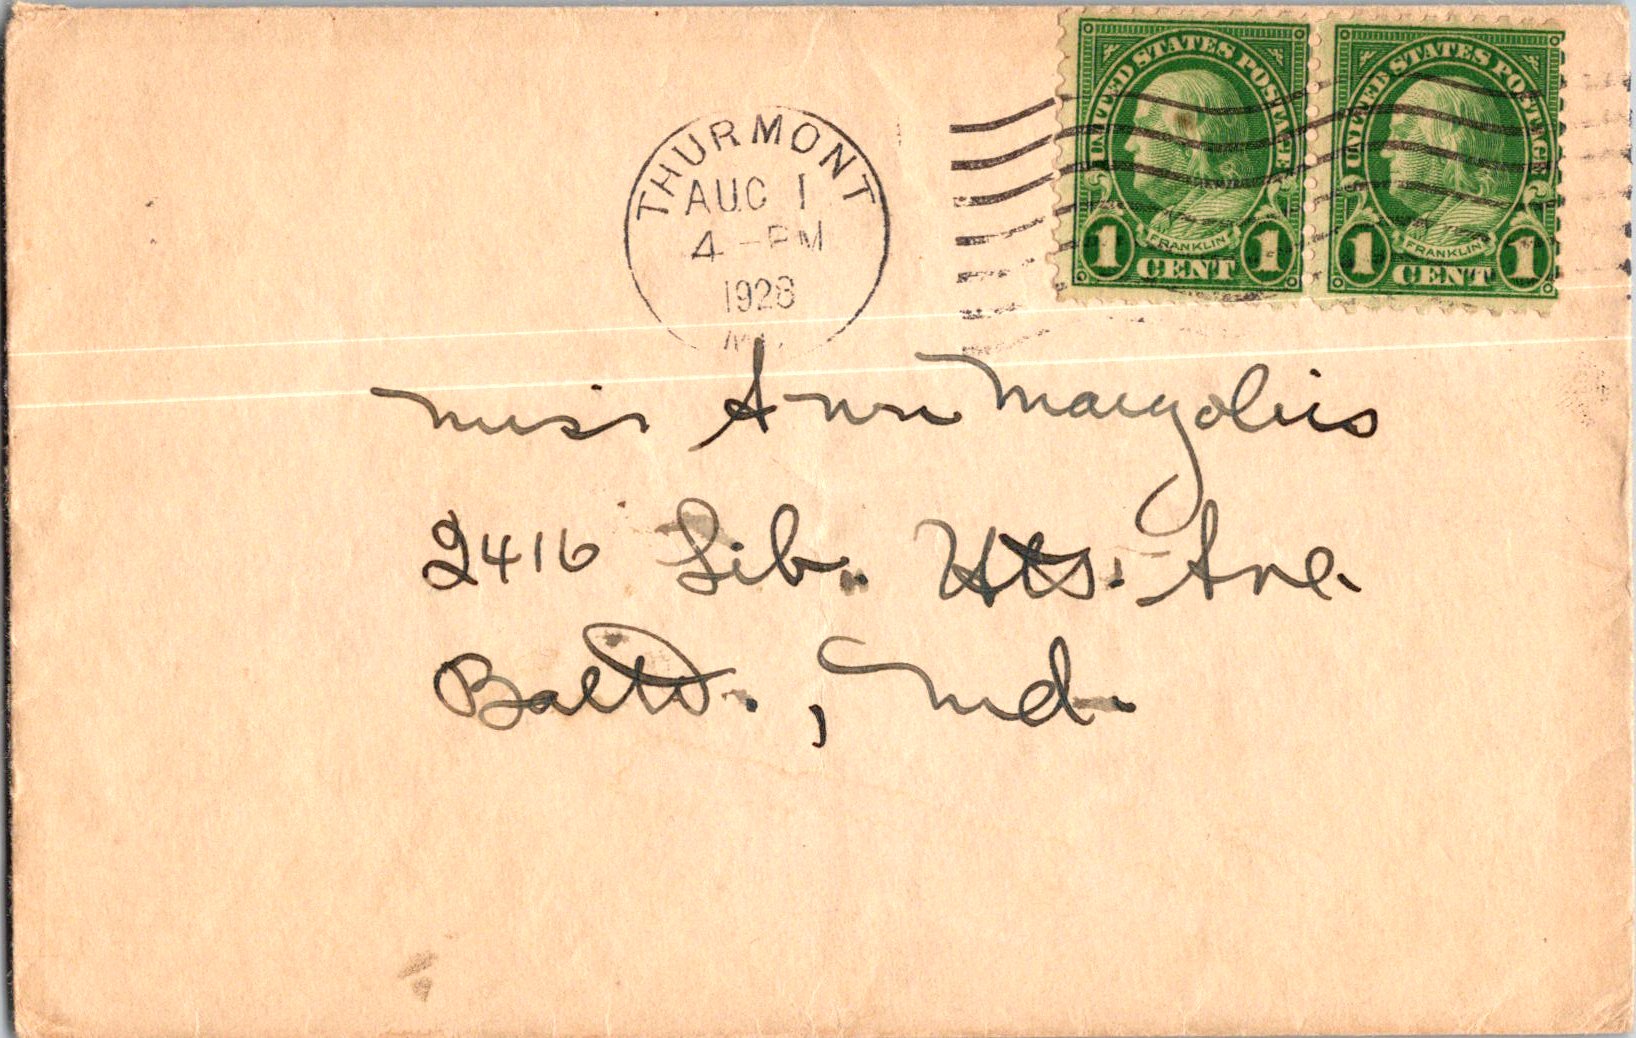 THURMONT
AUG 1
4 - PM
1928
MD.
UNITED STATES POSTAGE
FRANKLIN
1 CENT 1
UNITED STATES POSTAGE
FRANKLIN
1 CENT 1
Miss Ann Margolius
2416 Lib. Hts. Ave.
Balto., Md.